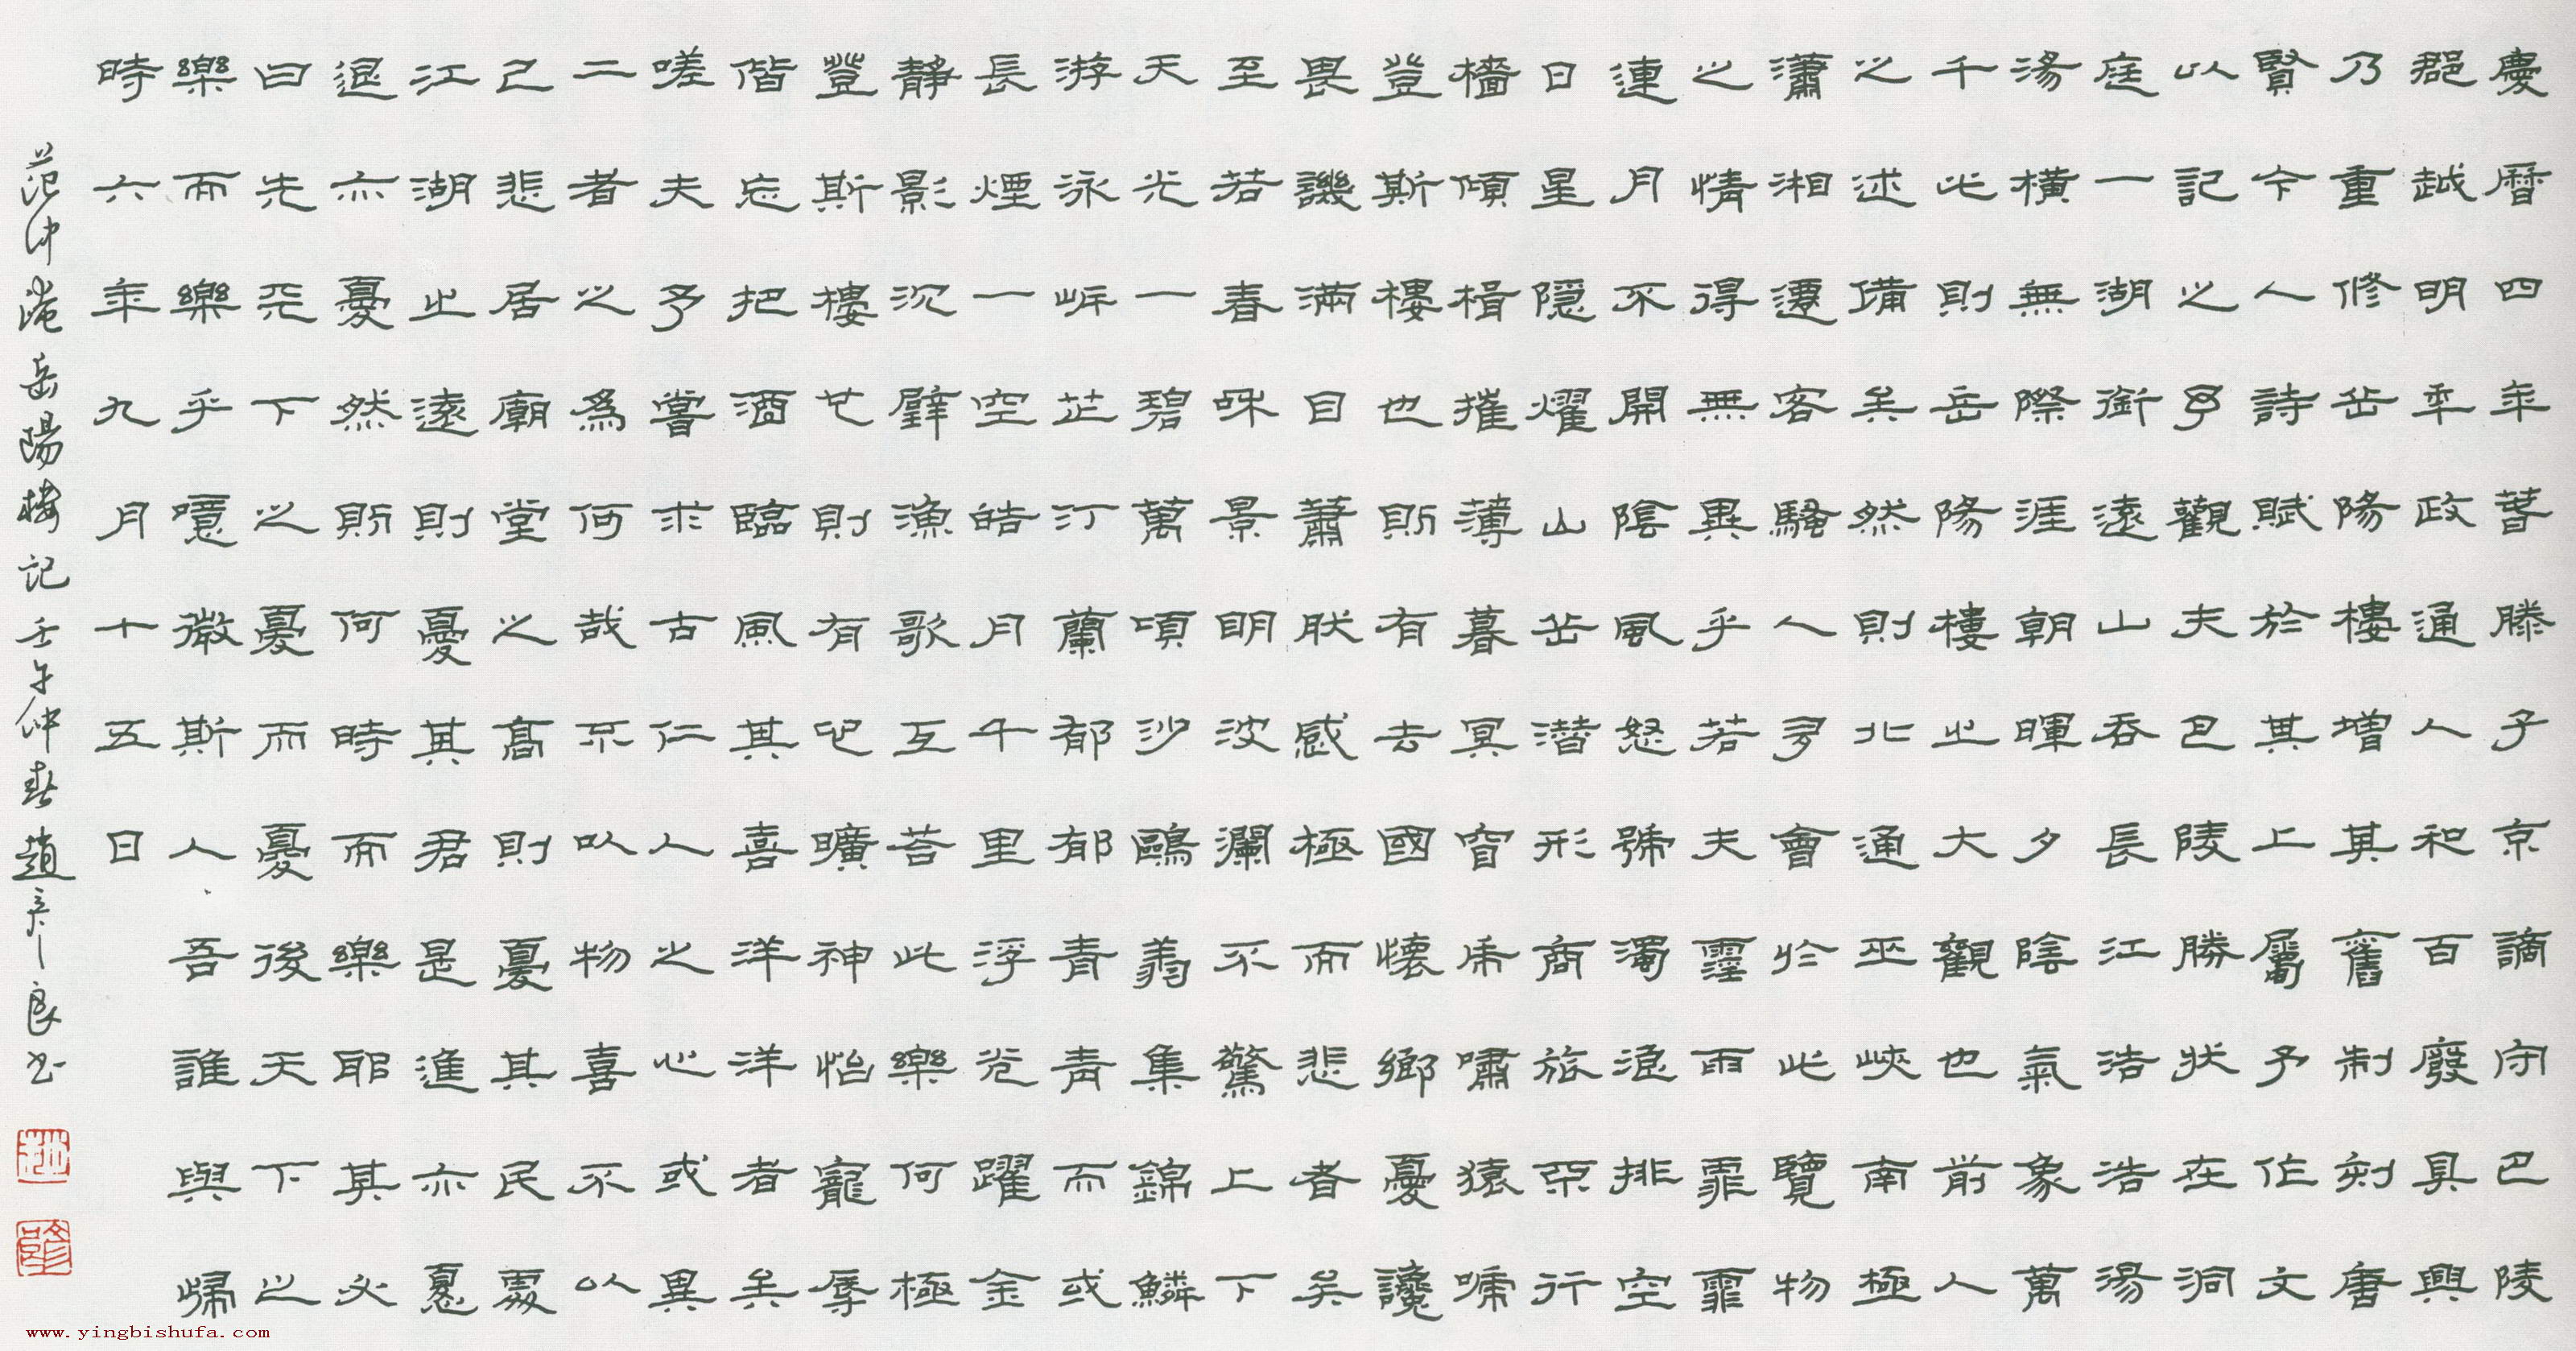 慶曆四年春滕子京謫守巴陵
郡越明年政通人和百廢具興
乃重修岳陽樓增其舊制刻唐
賢今人詩賦於其上屬予作文
以記之予觀夫巴陵勝狀在洞
庭一湖銜遠山吞長江浩浩湯
湯橫無際涯朝暉夕陰氣象萬
千此則岳陽樓之大觀也前人
之述備矣然則北通巫峽南極
瀟湘遷客騷人多會於此覽物
之情得無異乎若夫霪雨霏霏
連月不開陰風怒號濁浪排空
日星隱耀山岳潛形商旅不行
檣傾楫摧薄暮冥冥虎嘯猿啼
登斯樓也則有去國懷鄉憂讒
畏譏滿目蕭然感極而悲者矣
至若春和景明波瀾不驚上下
天光一碧萬頃沙鷗翔集錦鱗
游泳岸芷汀蘭郁郁青青而或
長煙一空皓月千里浮光躍金
靜影沉璧漁歌互答此樂何極
登斯樓也則有心曠神怡寵辱
偕忘把酒臨風其喜洋洋者矣
嗟夫予嘗求古仁人之心或異
二者之為何哉不以物喜不以
己悲居廟堂之高則憂其民處
江湖之遠則憂其君是進亦憂
退亦憂然則何時而樂耶其必
曰先天下之憂而憂後天下之
樂而樂乎噫微斯人吾誰與歸
時六年九月十五日
范仲淹岳陽樓記壬午仲春趙彥良書
www.yingbishufa.com